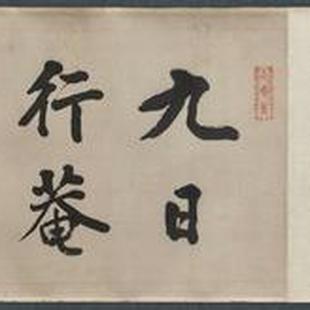 九日
行菴